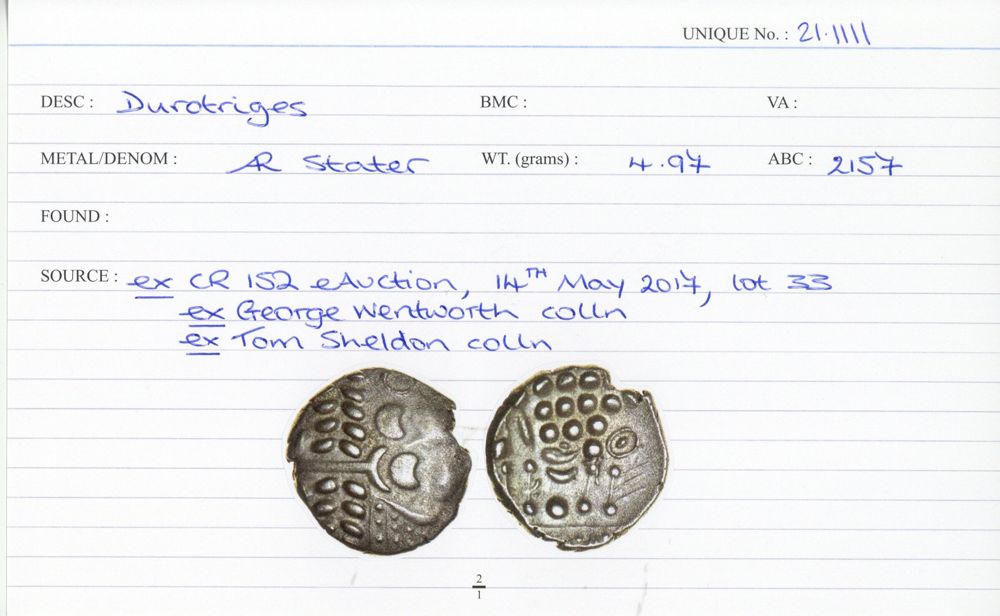 UNIQUE No. : 21.1111
DESC : Durotriges BMC : VA :
METAL/DENOM : AR Stater WT. (grams) : 4.97 ABC : 2157
FOUND :
SOURCE : ex CR 152 eAuction, 14TH May 2017, lot 33
ex George Wentworth colln
ex Tom Sheldon colln
2
1